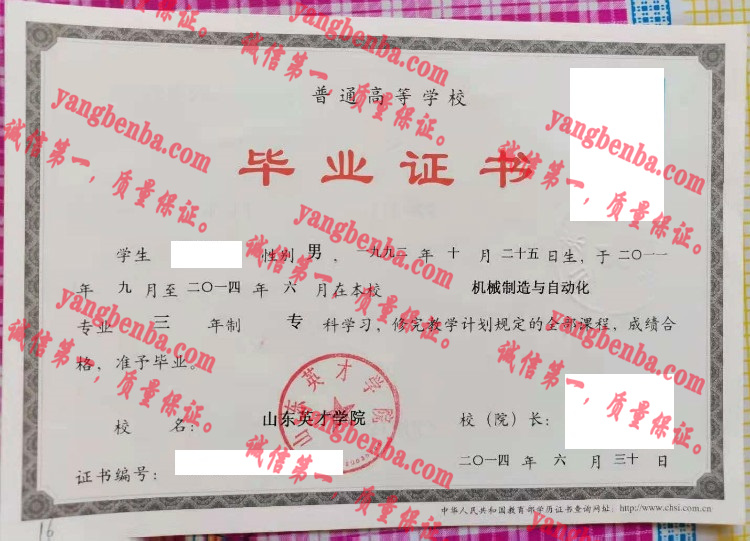 普通高等学校
毕业证书
学生 性别 男，一九九二年十月二十五日生，于二〇一一
年九月至二〇一四年六月在本校 机械制造与自动化
专业 三 年制 专 科学习，修完教学计划规定的全部课程，成绩合
格，准予毕业。
校 名： 山东英才学院 校（院）长：
证书编号： 二〇一四年六月三十日
中华人民共和国教育部学历证书查询网址：http://www.chsi.com.cn
16
山东英才学院
yangbenba.com
诚信第一，质量保证。
yangbenba.com
诚信第一，质量保证。
yangbenba.com
诚信第一，质量保证。
yangbenba.com
诚信第一，质量保证。
yangbenba.com
诚信第一，质量保证。
yangbenba.com
诚信第一，质量保证。
yangbenba.com
诚信第一，质量保证。
yangbenba.com
诚信第一，质量保证。